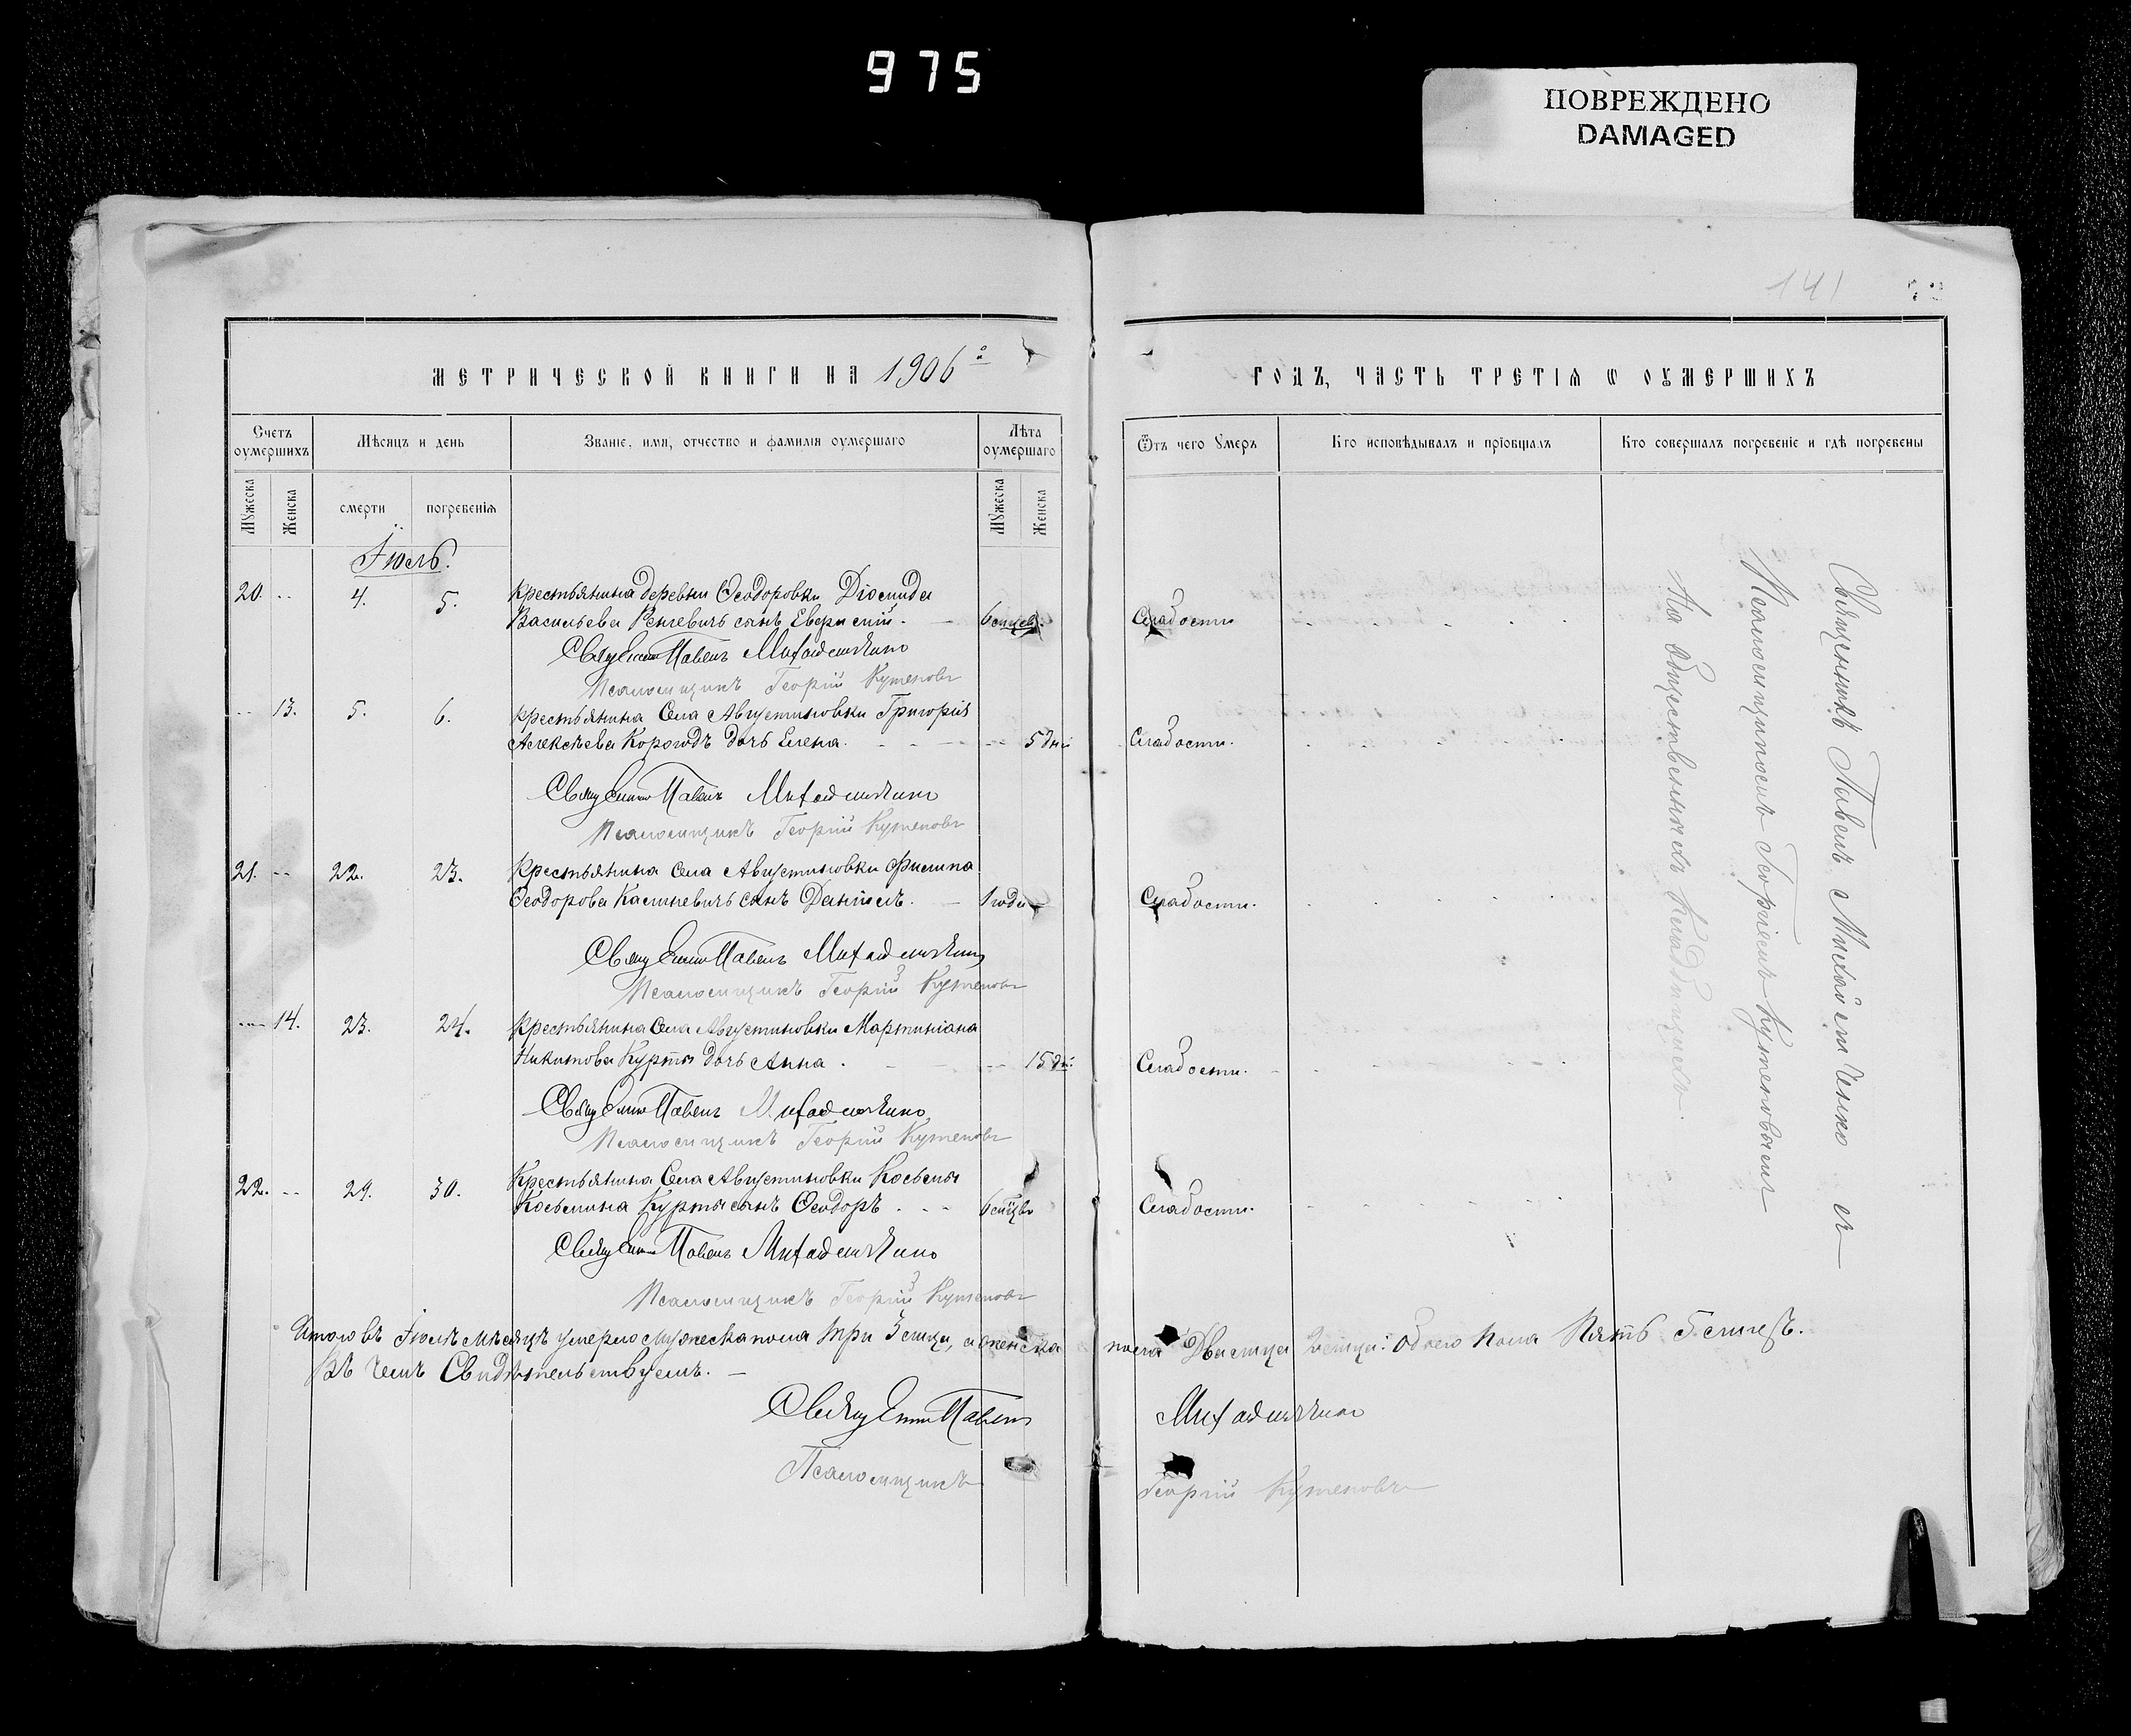 975
ПОВРЕЖДЕНО
DAMAGED
141
МЕТРИЧЕСКОЙ КНИГИ НА 1906й
ГОДЪ, ЧАСТЬ ТРЕТІЯ Ѡ ОУМЕРШИХЪ
Счетъ оумершихъ
Мѣсяцъ и день
Званіе, имя, отчество и фамилія оумершаго
Лѣта оумершаго
Ѿтъ чего Умеръ
Кто исповѣдывалъ и пріобщалъ
Кто совершалъ погребеніе и гдѣ погребены
Мужеска
Женска
смерти
погребенія
Мужеска
Женска
Іюль.
20. 4. 5. Крестьянина деревни Ѳеодоровки Діомида
Васильева сынъ 6 Слабости
Священникъ Павелъ Михайличенко
Псаломщикъ Георгій Кутеповъ
13. 5. 6. Крестьянина села Августиновки Григорія
Алексѣева Корогодъ дочь Елена. 5 дн. Слабости.
Священникъ Павелъ Михайличенко
Псаломщикъ Георгій Кутеповъ
21. 22. 23. Крестьянина села Августиновки Филиппа
Ѳеодорова сынъ Даніилъ. 1 года Слабости.
Священникъ Павелъ Михайличенко
Псаломщикъ Георгій Кутеповъ
14. 23. 24. Крестьянина села Августиновки Мартиніана
Никитова Курты дочь Анна. 15 дн. Слабости.
Священникъ Павелъ Михайличенко
Псаломщикъ Георгій Кутеповъ
22. 29. 30. Крестьянина села Августиновки Косьмы
Косьмина Курты сынъ Ѳеодоръ. 6 Слабости.
Священникъ Павелъ Михайличенко
Псаломщикъ Георгій Кутеповъ
Священникъ Павелъ Михайличенко съ
Псаломщикомъ Георгіемъ Кутеповымъ
На общественномъ кладбищѣ.
Итого въ Іюлѣ мѣсяцѣ умерло мужеска пола три 3 лица, а женска пола два лица 2 лица: обоего пола Пять 5 лицъ.
Въ чемъ Свидѣтельствуемъ.
Священникъ Павелъ Михайличенко
Псаломщикъ Георгій Кутеповъ